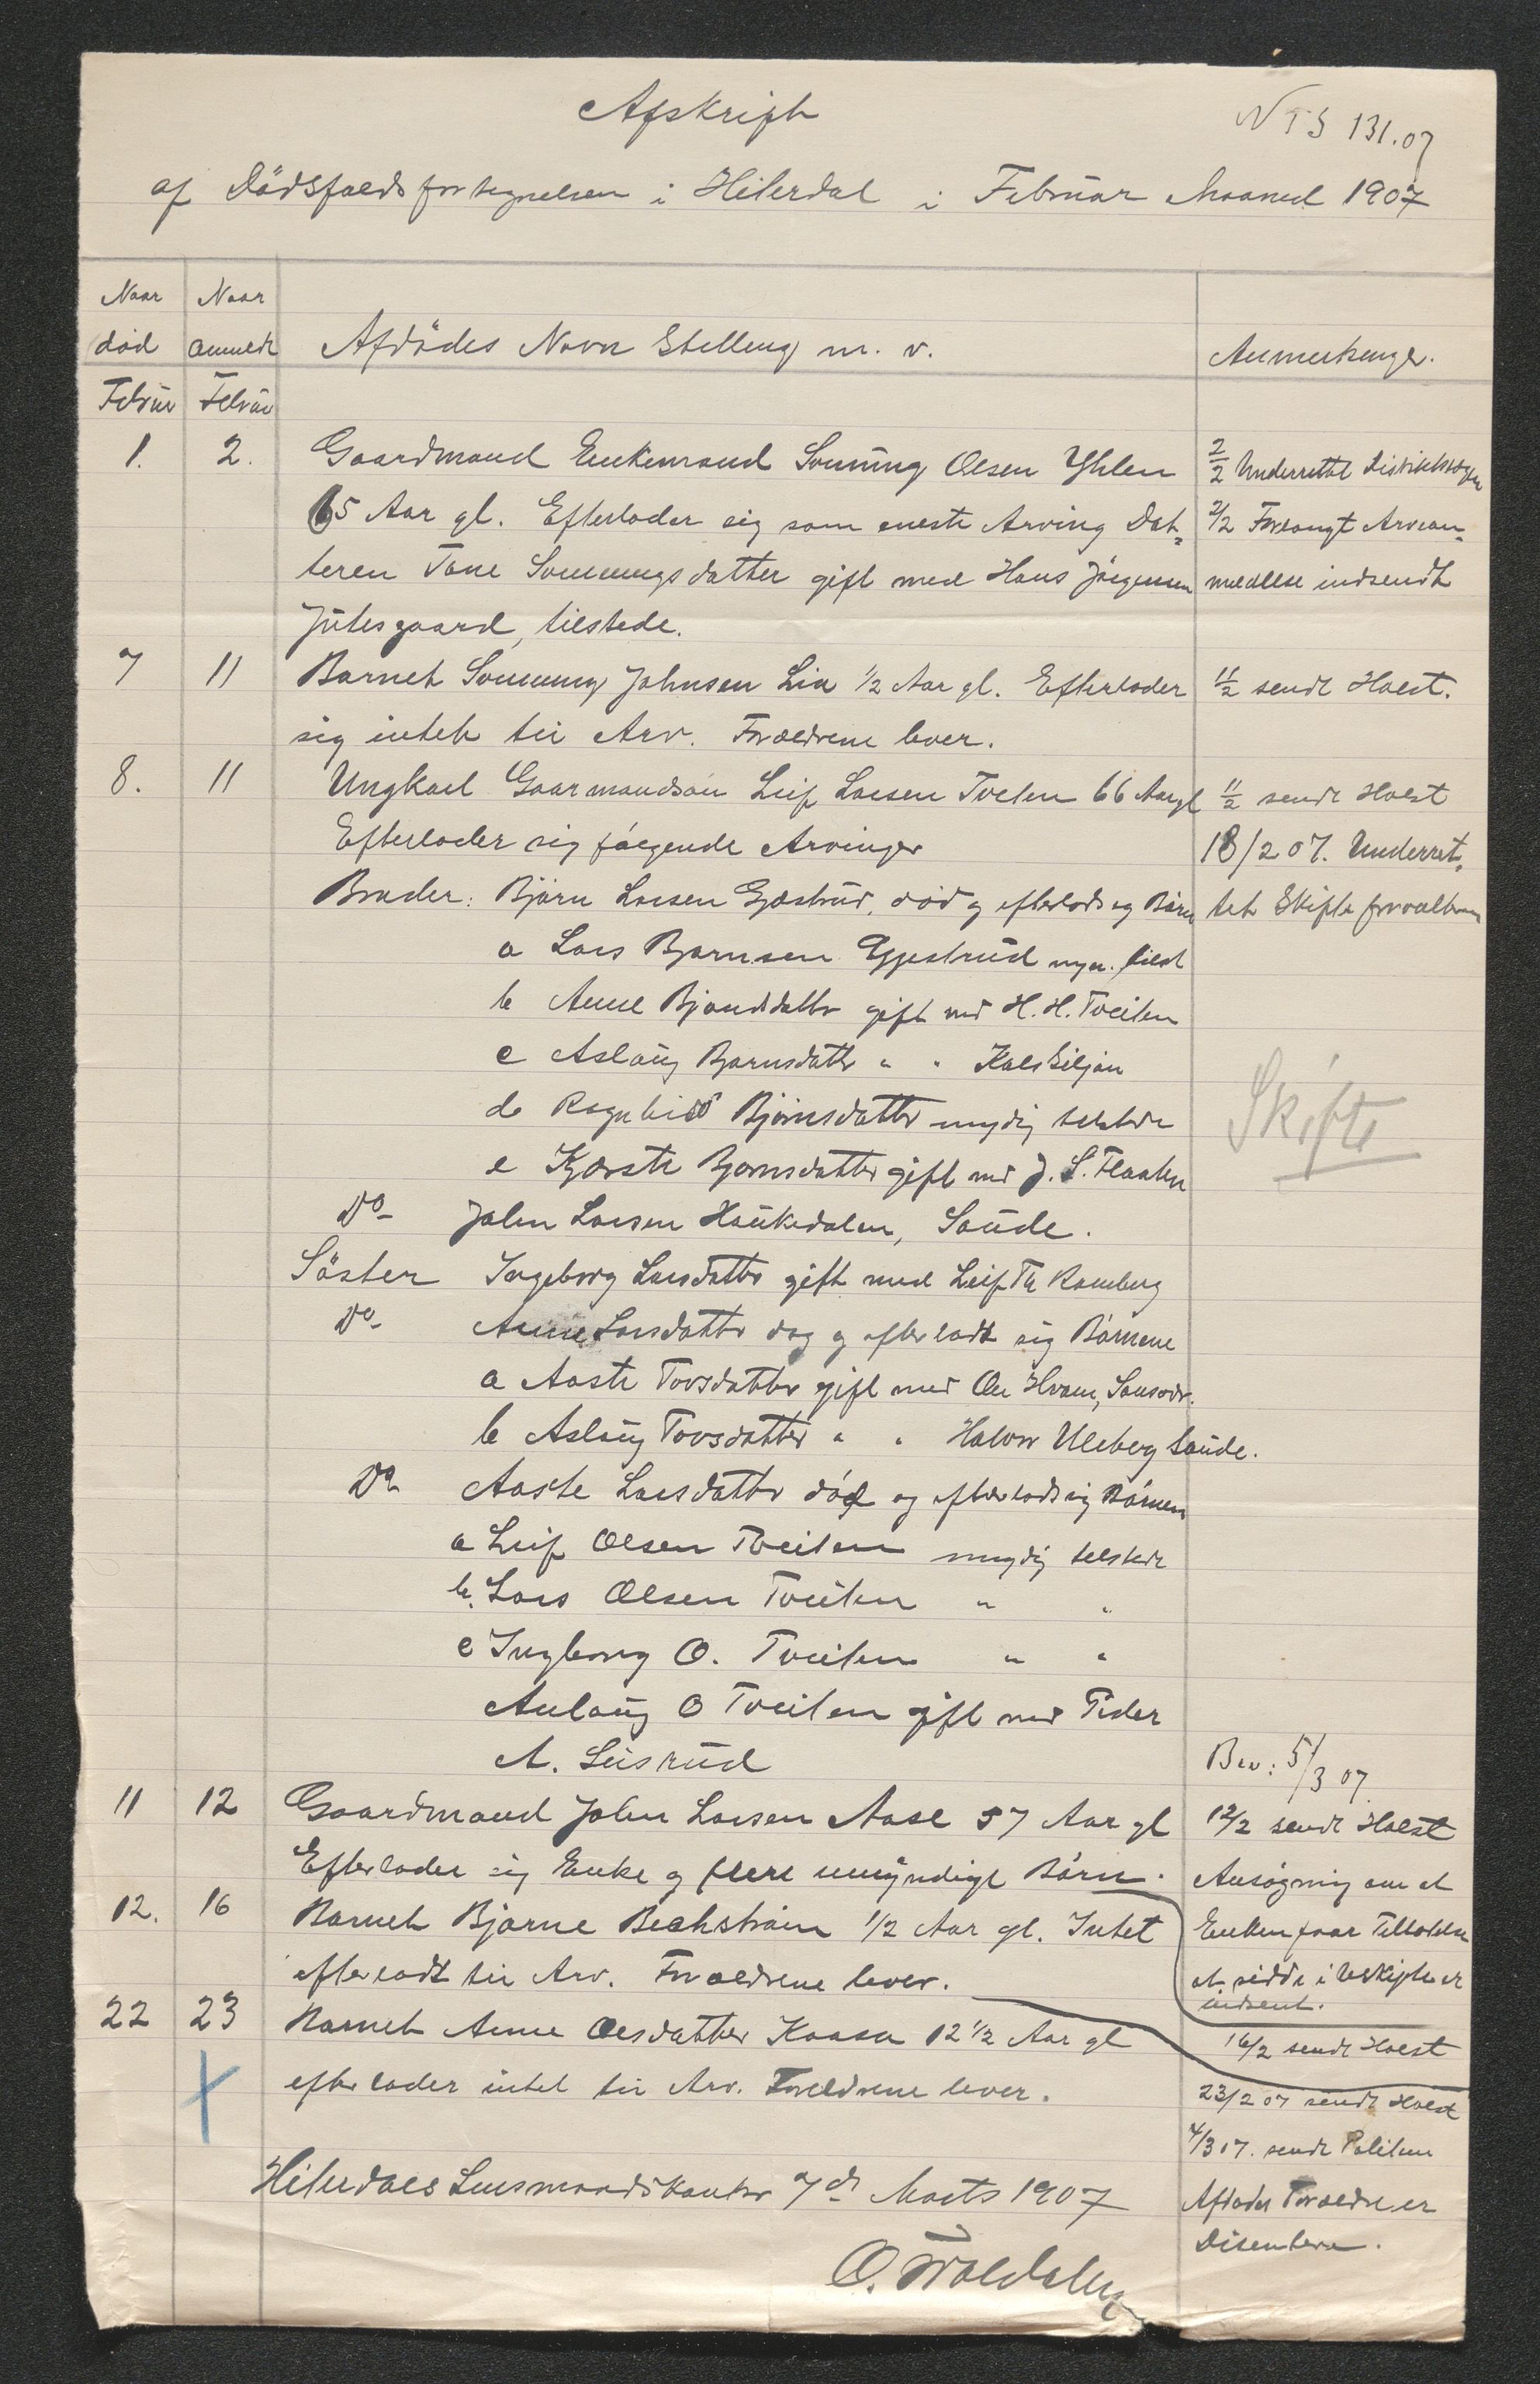 Afskrift
NTS 131.07
af Dödsfaldsfortegnelsen i Hiterdal i Februar Maaned 1907
Naar död
Naar anmeldt
Afdödes Navn Stelling m. v.
Anmerkinger.
Februar
Februar
1. 2. Gaardmand Enkemand Sveinung Olsen Yhlen
65 Aar gl. Efterlader sig som eneste Arving Dat-
teren Tone Sveinungsdatter gift med Hans Jörgensen
Jutesgaard, tilstede.
2/2 Underrettet Distriktslægen
2/2 Forlangt Arvean-
meldelse indsendt
7 11 Barnet Sveinung Johnsen Lia 1/2 Aar gl. Efterlader
sig intet til Arv. Forældrene lever.
11/2 sendt Holst.
8. 11 Ungkarl Gaarmandsön Leif Larsen Tveten 66 Aar gl
Efterlader sig fölgende Arvinger
11/2 sendt Holst
18/2 07. Underret-
tet Skifteforvalteren
Broder: Björn Larsen Gjestrud, död og efterlod sig Börn
a Lars Bjørnsen Gjestrud myn. tilst
b Anne Bjørnsdatter gift med H. H. Tveiten
c Aslaug Bjørnsdatter " "
d Ragnhild Björnsdatter myndig tilstede
e Kjerste Bjørnsdatter gift med J. S. Flaaten
Skifte
Do John Larsen Haukedalen, Saude.
Söster Ingeborg Larsdatter gift med Leif Th Ramberg
Do Anne Larsdatter död og efterladt sig Börnene
a Aaste Tovsdatter gift med Ole Hvam, Sansvær.
b Aslaug Tovsdatter " " Halvor Uleberg Saude.
Do Aaste Larsdatter död og efterlod sig Börnene
a Leif Olsen Tveiten myndig tilstede
b. Lars Olsen Tveiten " "
c Ingborg O. Tveiten " "
Anlaug O Tveiten gift med Peder
A. Leisrud
Bev: 5/3 07.
11 12 Gaardmand John Larsen Aase 57 Aar gl
Efterlader sig Enke og flere umyndige Börn.
12/2 sendt Holst
Ansögning om at
Enken faar Tilladelse
at sidde i Uskifte er
indsent.
12. 16 Barnet Bjarne Bechström 1/2 Aar gl. Intet
efterladt til Arv. Forældrene lever.
16/2 sendt Holst
22 23 Barnet Anne Olsdatter Kaasa 12 1/2 Aar gl
efterlader intet til Arv. Forældrene lever.
23/2 07 sendt Holst
4/3 07. sendt Politiet
Afdødes Forældre er
Disentere.
Hiterdals Lensmandskontor 7de Marts 1907